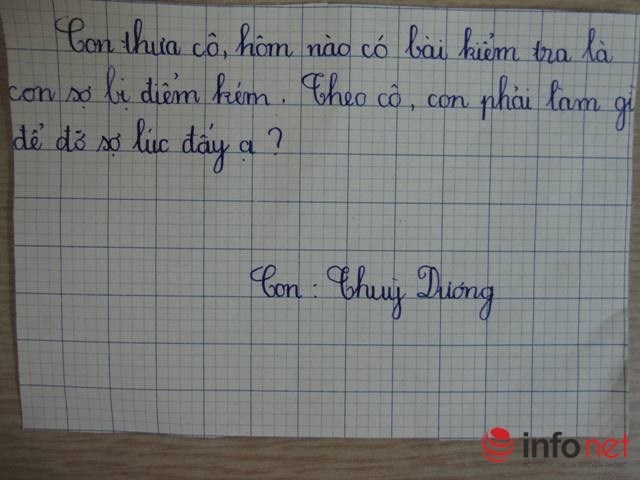 Con thưa cô, hôm nào có bài kiểm tra là
con sợ bị điểm kém. Theo cô, con phải làm gì
để đỡ sợ lúc đấy ạ?
Con: Thuỳ Dương
infonet